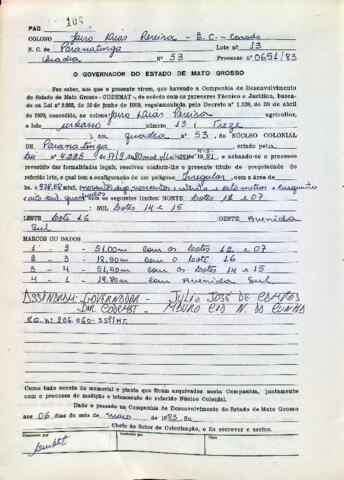 PAG. 168
COLONO Jairo Dias Pereira - B.C. - Casado
N. C. de Paranatinga Lote nº 13
Quadra Nº 53 Processo nº 0651/83
O GOVERNADOR DO ESTADO DE MATO GROSSO
Faz saber, aos que o presente virem, que havendo a Companhia de Desenvolvimento
do Estado de Mato Grosso - CODEMAT -, de acôrdo com os pareceres Técnico e Jurídico, basea-
do na Lei nº de 10 de junho de regulamentada pelo Decreto nº de 20 de abril
de 1929, concedido, ao colono Jairo Dias Pereira agricultor,
o lote urbano número 13 ( Treze
) da quadra nº 53, DO NÚCLEO COLONIAL
DE Paranatinga criado pela
Lei nº 4.225 81 e estando o processo
revestido das formalidades legais, resolveu conferir-lhe o presente título de propriedade do
referido lote, o qual tem a configuração de um polígono Irregular com a área de
com os seguintes limites: NORTE lotes 12 e 07
SUL lotes 14 e 15
LESTE lote 16 OESTE Avenida
Sul
MARCOS OU DADOS
1 - 2 - 51,00m com os lotes 12 e 07
2 - 3 - 18,90m com o lote 16
3 - 4 - 51,40m com os lotes 14 e 15
4 - 1 - 19,80m com Avenida Sul
ASSINADA: GOVERNADOR - JULIO JOSÉ DE CAMPOS
DIR. CODEMAT - MAURO CID N. DA CUNHA
R.G. nº 206.060-SSP/MT.
Tudo como consta do memorial e planta que ficam arquivados nesta Companhia, juntamente
com o processo de medição e loteamento do referido Núcleo Colonial.
Dado e passado na Companhia de Desenvolvimento do Estado de Mato Grosso
aos 06 dias do mês de maio de 1983. Eu,
Chefe do Setor de Colonização, o fiz escrever e assino.